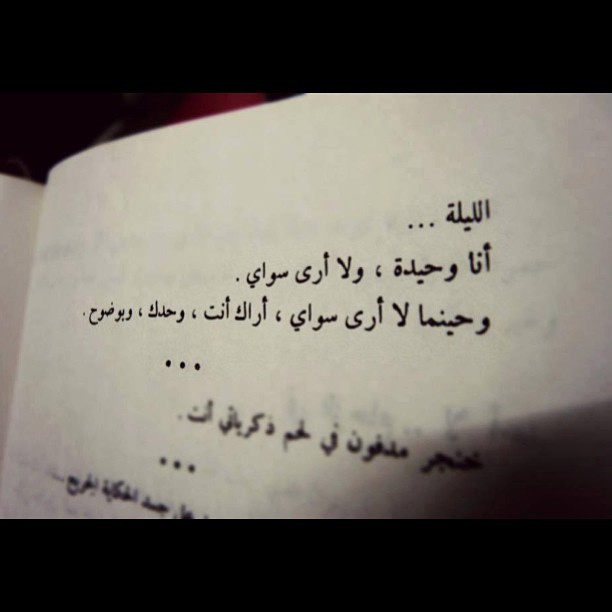 الليلة ...
أنا وحيدة ، ولا أرى سواي .
وحينما لا أرى سواي ، أراك أنت ، وحدك ، وبوضوح .
...
خنجر مدفون في لحم ذكرياتي أنت .
...
على جسد الحكاية الجريح ...